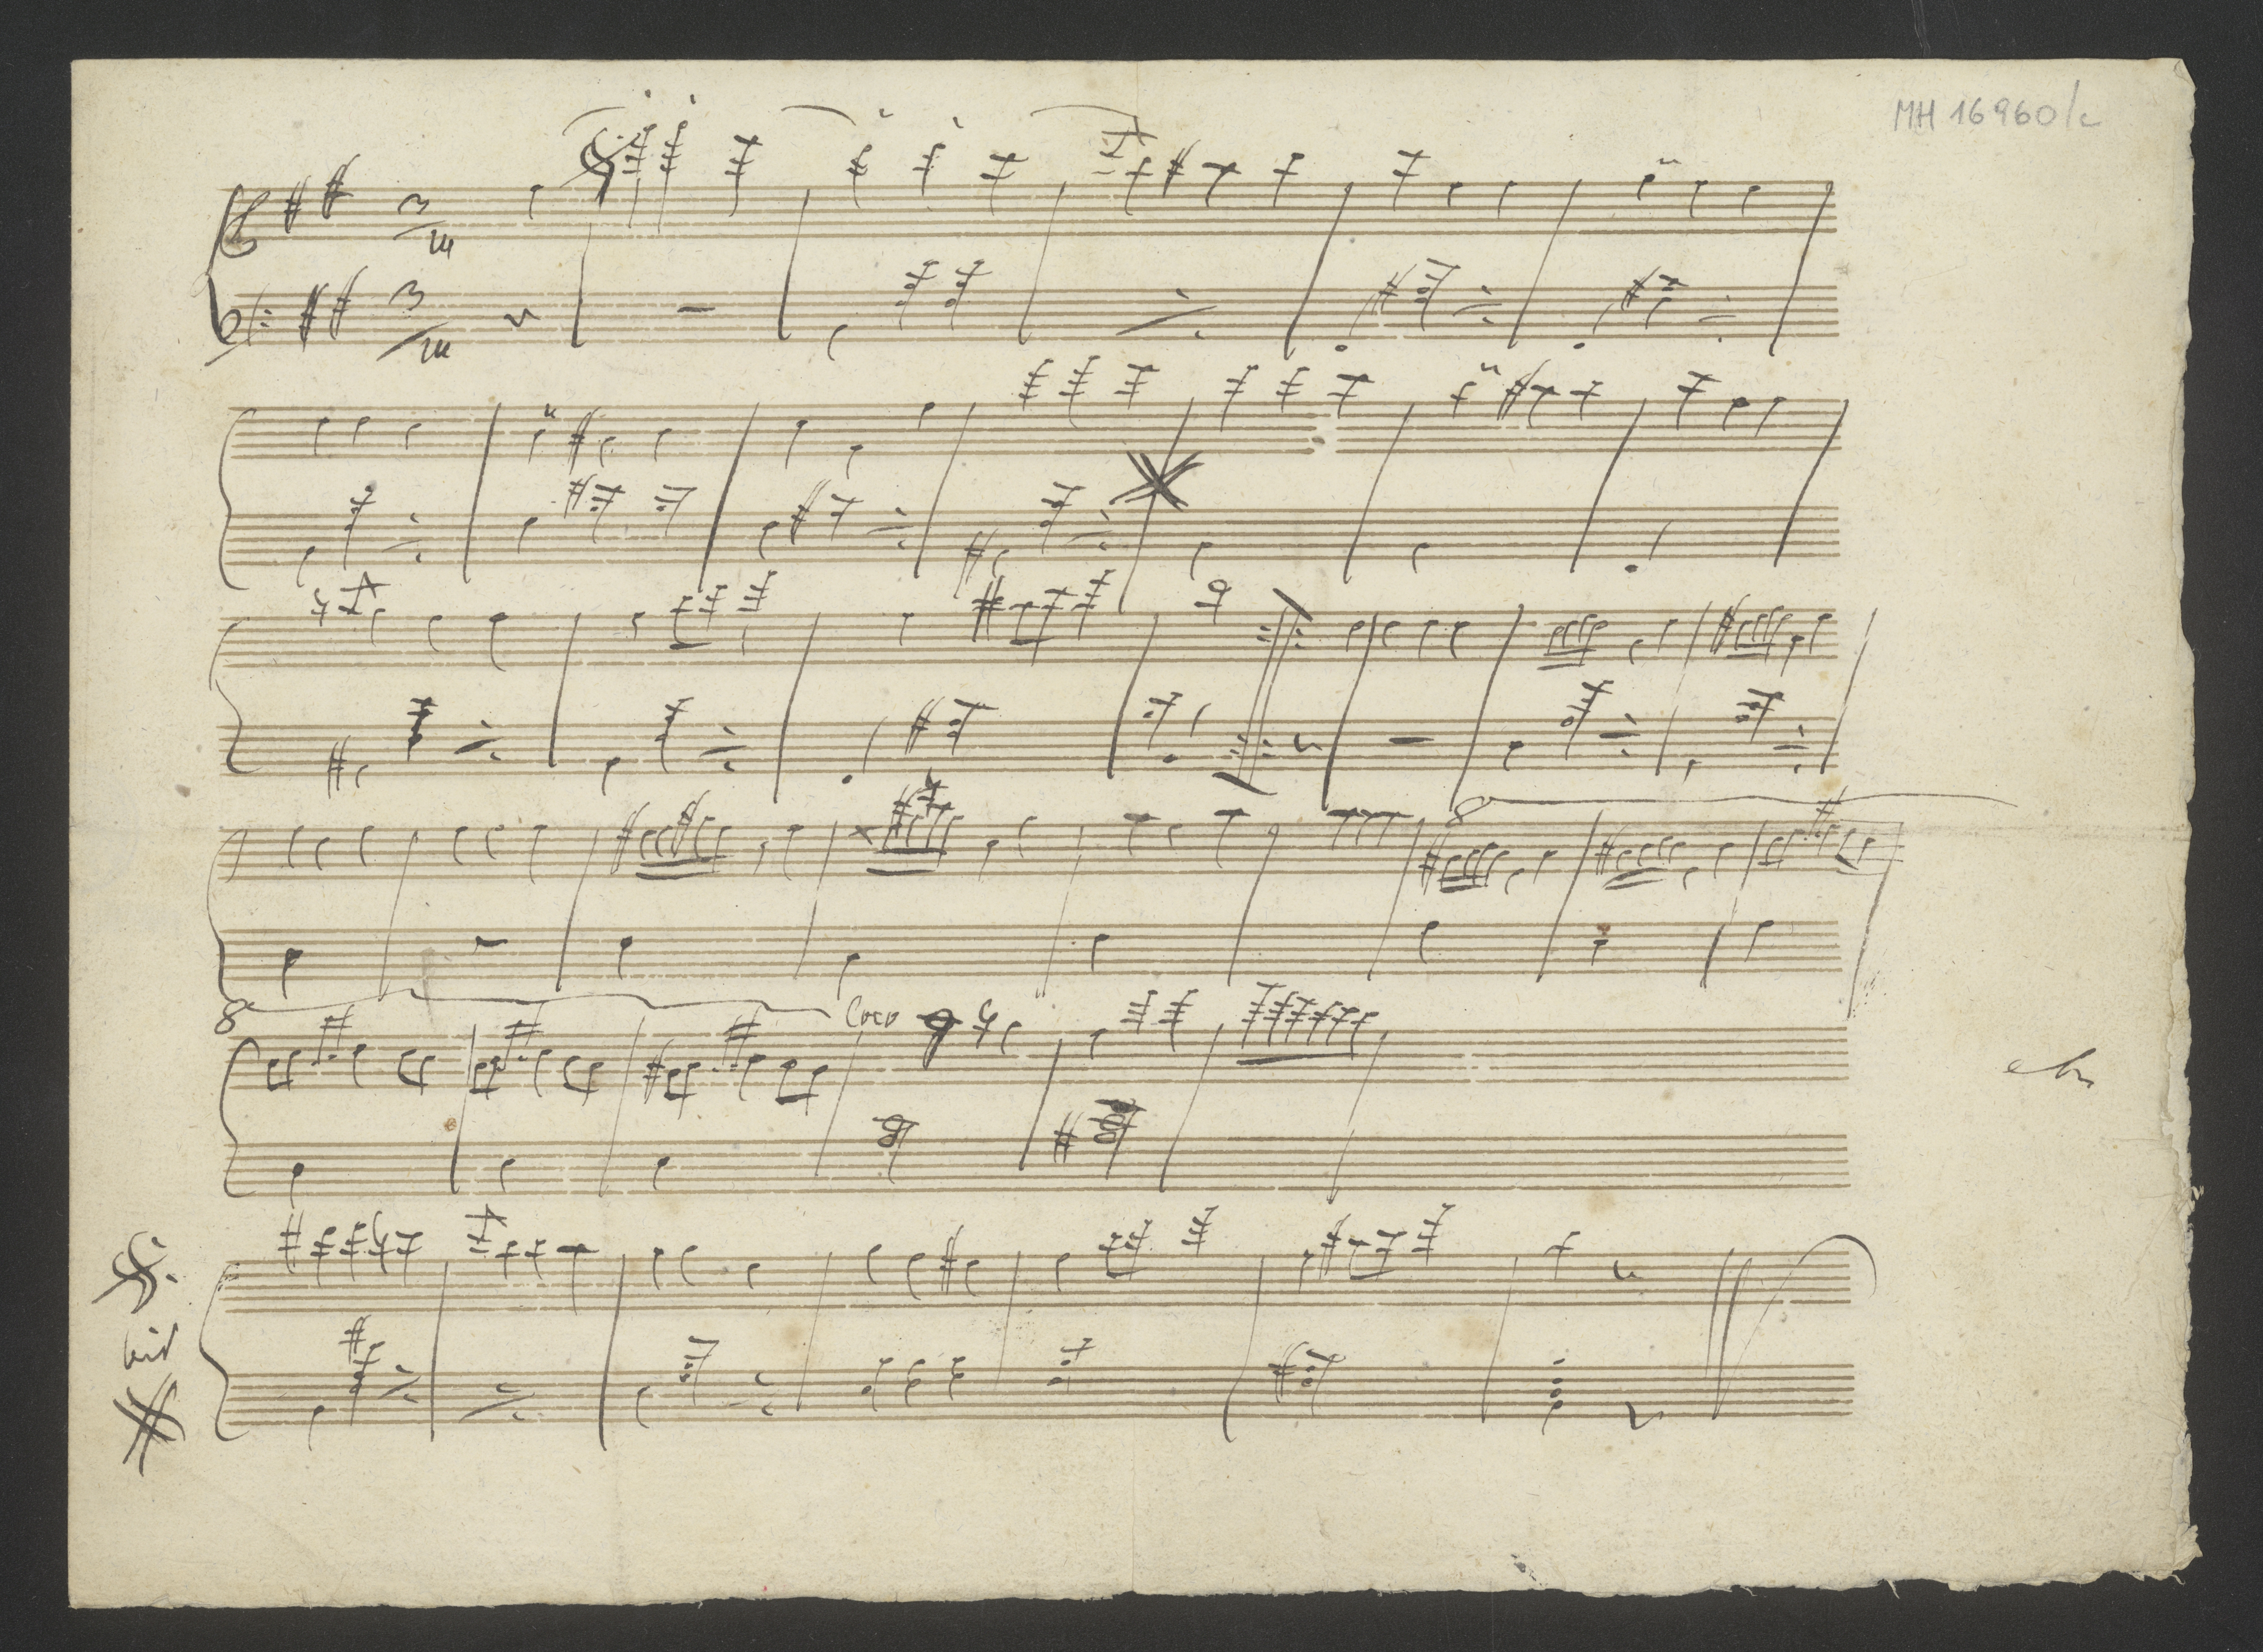 MH 16960/c
3/4
3/4
8
8
loco
bis